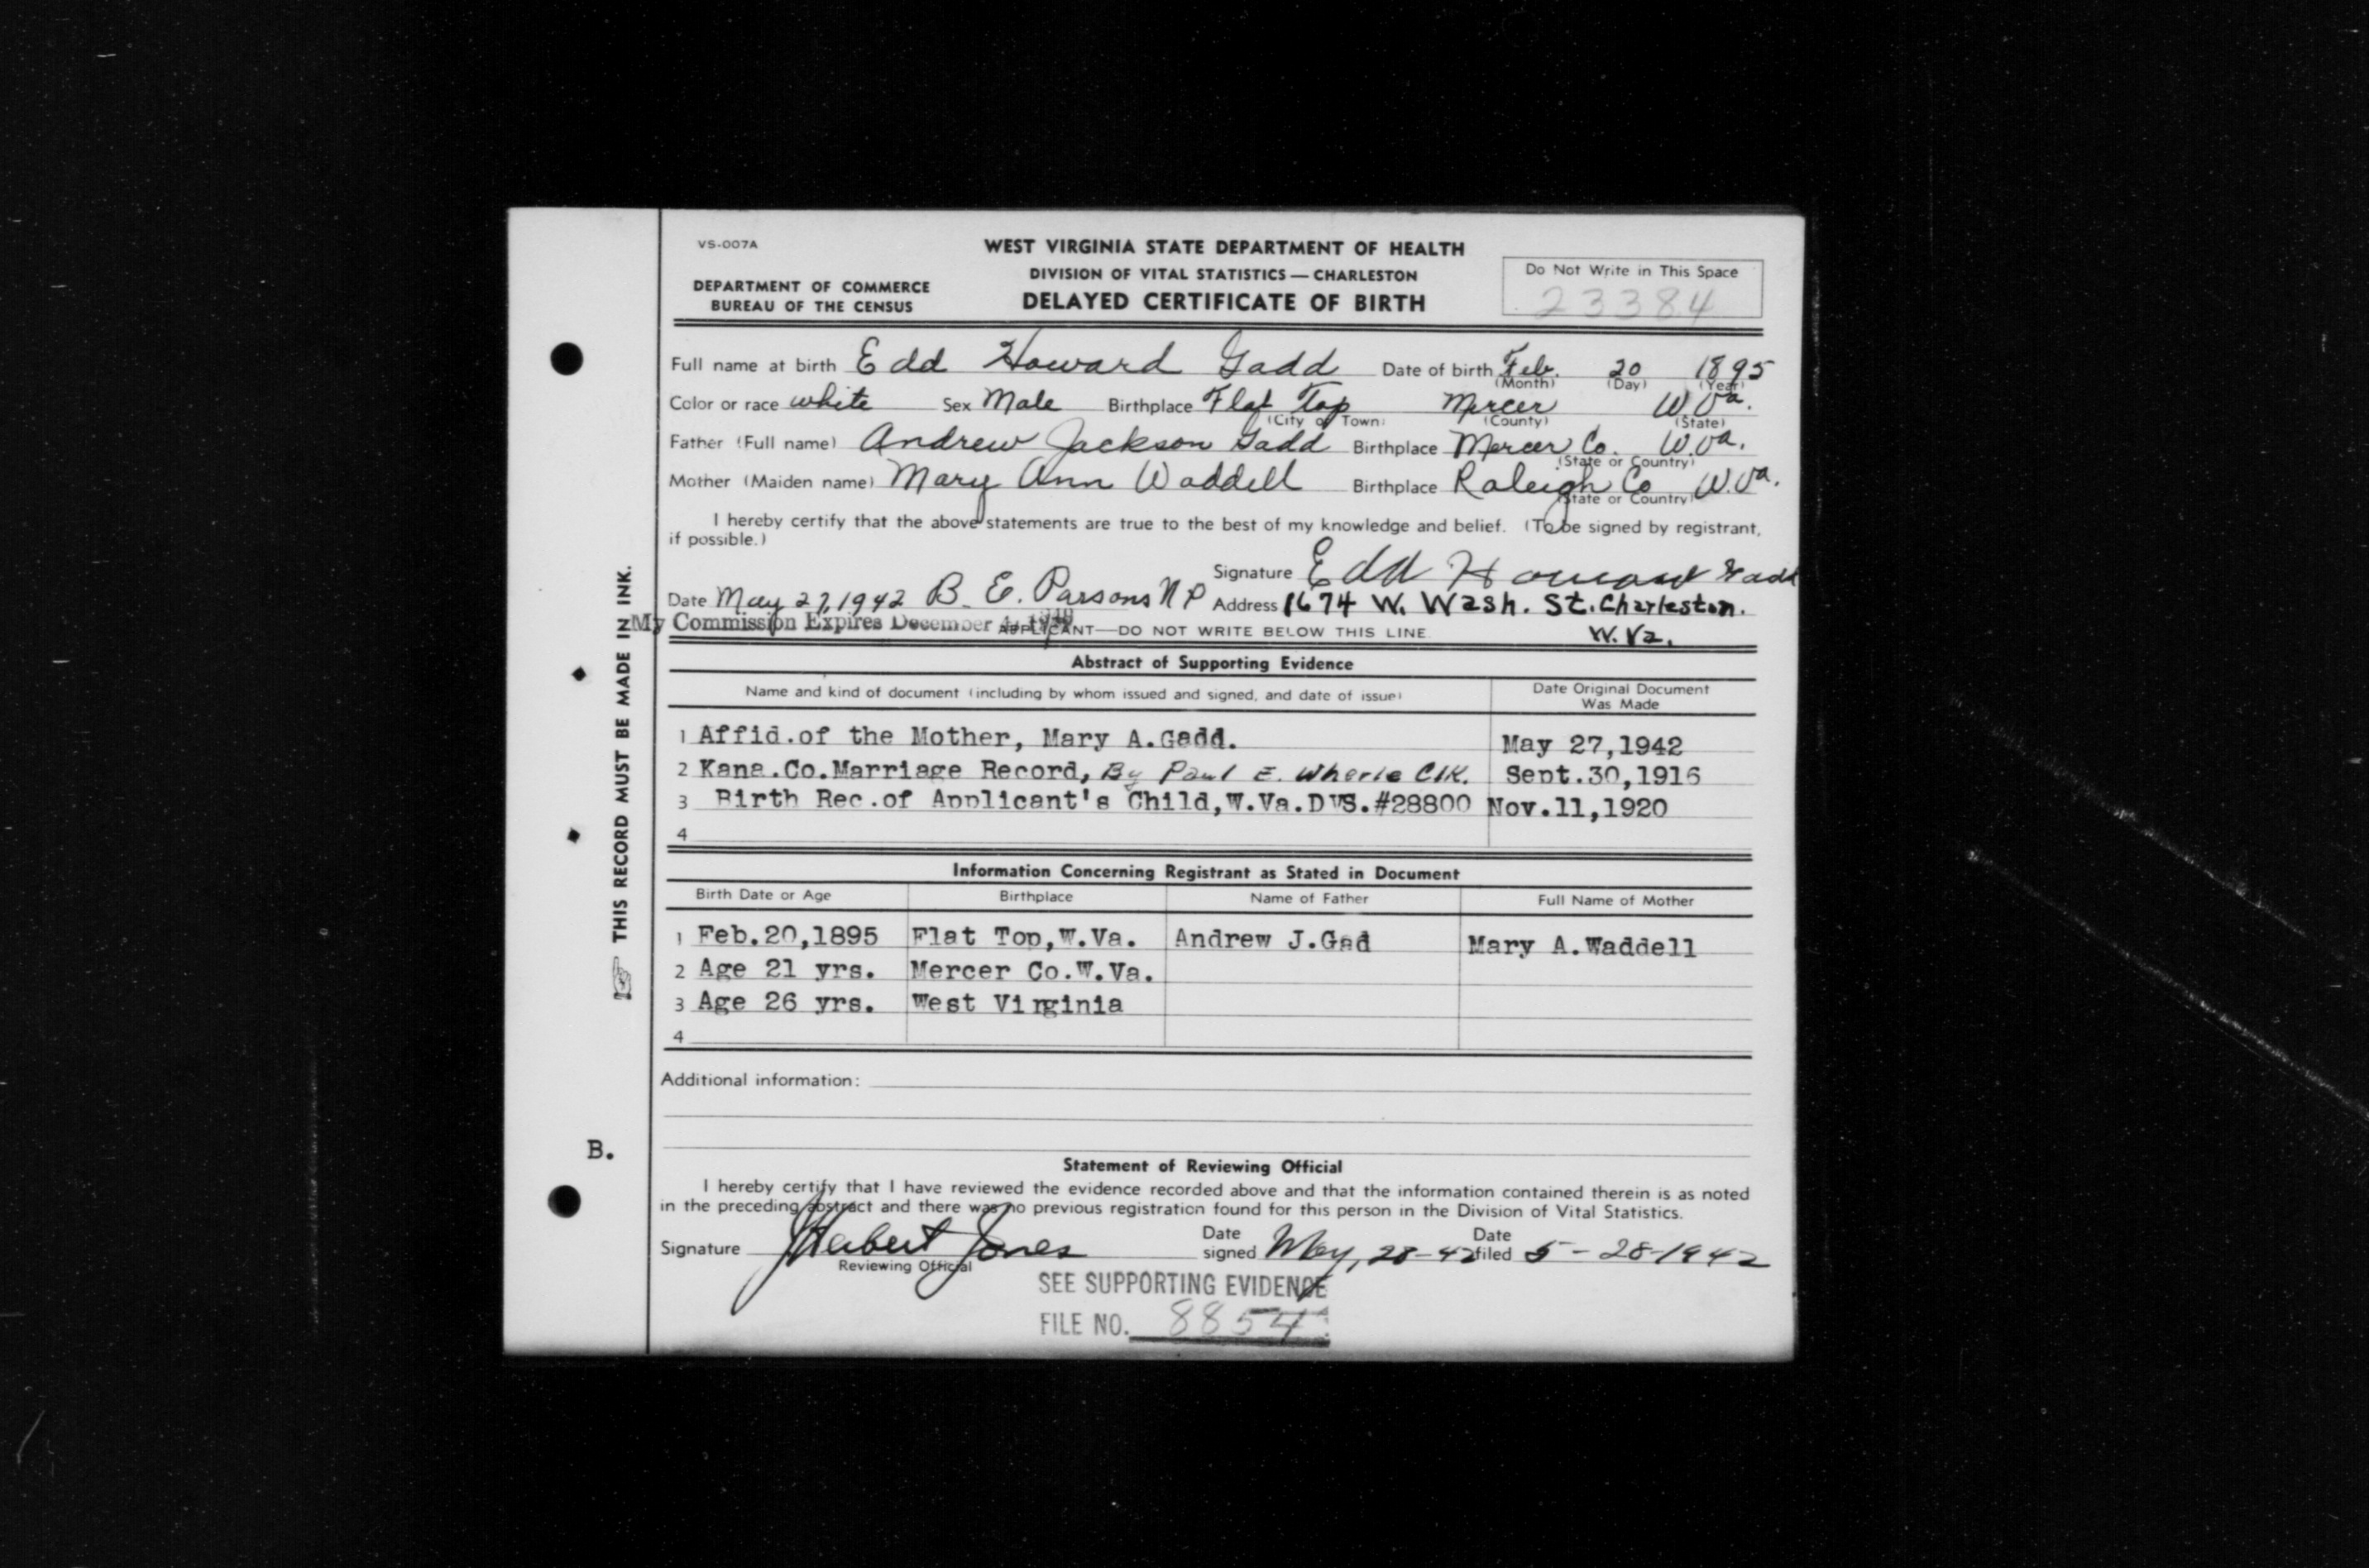 VS-007A
WEST VIRGINIA STATE DEPARTMENT OF HEALTH
DIVISION OF VITAL STATISTICS — CHARLESTON
DELAYED CERTIFICATE OF BIRTH
DEPARTMENT OF COMMERCE
BUREAU OF THE CENSUS
Do Not Write in This Space
23384
Full name at birth Edd Howard Gadd Date of birth Feb. 20 1895
(Month) (Day) (Year)
Color or race white Sex Male Birthplace Flat Top Mercer W.Va.
(City or Town) (County) (State)
Father (Full name) Andrew Jackson Gadd Birthplace Mercer Co. W.Va.
(State or Country)
Mother (Maiden name) Mary Ann Waddell Birthplace Raleigh Co W.Va.
(State or Country)
I hereby certify that the above statements are true to the best of my knowledge and belief. (To be signed by registrant,
if possible.)
Signature Edd Howard Gadd
Date May 27, 1942 B. E. Parsons N P Address 1674 W. Wash. St. Charleston.
W. Va.
My Commission Expires December 4, 1949
APPLICANT—DO NOT WRITE BELOW THIS LINE
Abstract of Supporting Evidence
Name and kind of document (including by whom issued and signed, and date of issue) Date Original Document
Was Made
1 Affid.of the Mother, Mary A.Gadd. May 27,1942
2 Kana.Co.Marriage Record, By Paul E. Wherle Clk. Sept.30,1916
3 Birth Rec.of Applicant's Child,W.Va.DVS.#28800 Nov.11,1920
4
Information Concerning Registrant as Stated in Document
Birth Date or Age Birthplace Name of Father Full Name of Mother
1 Feb.20,1895 Flat Top,W.Va. Andrew J.Gad Mary A.Waddell
2 Age 21 yrs. Mercer Co.W.Va.
3 Age 26 yrs. West Virginia
4
Additional information:
Statement of Reviewing Official
I hereby certify that I have reviewed the evidence recorded above and that the information contained therein is as noted
in the preceding abstract and there was no previous registration found for this person in the Division of Vital Statistics.
Signature Herbert Jones Date signed May, 28-42 Date filed 5-28-1942
Reviewing Official
SEE SUPPORTING EVIDENCE
FILE NO. 8854
THIS RECORD MUST BE MADE IN INK.
B.